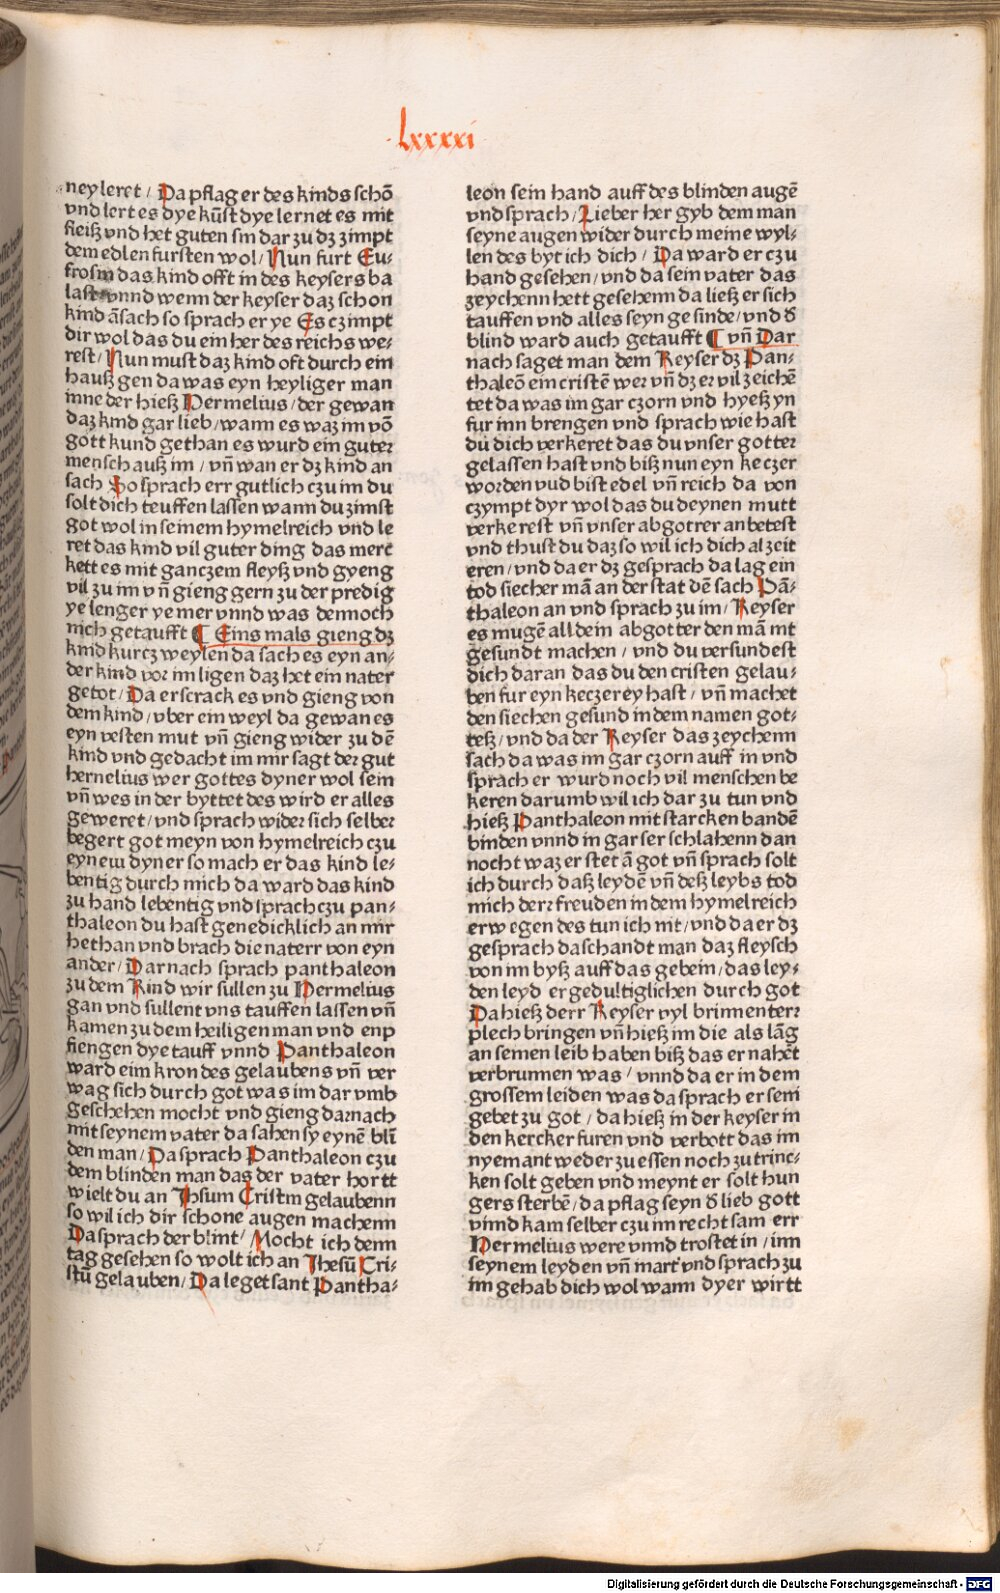 lxxxxi
ney leret / Da pflag er des kinds schõ
vnd lert es dye kũst dye lernet es mit
fleiß vnd het guten sin dar zu dz zimpt
dem edlen fursten wol / Nun furt Eu-
frosin das kind offt in des keysers ba
last vnnd wenn der keyser daz schon
kind ãsach so sprach er ye Es czimpt
dir wol das du ein her des reichs we-
rest / Nun must daz kind oft durch ein
hauß gen da was eyn heyliger man
inne der hieß Hermelius / der gewan
daz kind gar lieb / wann es waz im võ
gott kund gethan es wurd ein guter
mensch auß im / vñ wan er dz kind an
sach So sprach err gutlich czu im du
solt dich teuffen lassen wann du zimst
got wol in seinem hymelreich vnd le
ret das kind vil guter ding das merc
kett es mit ganczem fleyß vnd gyeng
vil zu im vñ gieng gern zu der predig
ye lenger ye mer vnnd was dennoch
nich getaufft ¶ Eins mals gieng dz
kind kurcz weylen da sach es eyn an-
der kind vor im ligen daz het ein nater
getot / Da erscrack es vnd gieng von
dem kind / vber ein weyl da gewan es
eyn vesten mut vñ gieng wider zu dẽ
kind vnd gedacht im mir sagt der gut
hernelius wer gottes dyner wol sein
vñ wes in der byttet des wird er alles
geweret / vnd sprach wider sich selber
begert got meyn von hymelreich czu
eynem dyner so mach er das kind le-
bentig durch mich da ward das kind
zu hand lebentig vnd sprach czu pan-
thaleon du hast genedicklich an mir
hethan vnd brach die naterr von eyn
ander / Darnach sprach panthaleon
zu dem Kind wir sullen zu Hermelius
gan vnd sullent vns tauffen lassen vñ
kamen zu dem heiligen man vnd enp
fiengen dye tauff vnnd Panthaleon
ward eim kron des gelaubens vñ ver
wag sich durch got was im dar vmb
geschehen mocht vnd gieng darnach
mit seynem vater da sahen sy eynẽ blĩ
den man / Da sprach Panthaleon czu
dem blinden man das der vater hortt
wielt du an Jhsum Cristm gelaubenn
so wil ich dir schone augen machenn
Da sprach der blint / Mocht ich denn
tag gesehen so wolt ich an Jhesũ Cri-
stũ gelauben / Da leget sant Pantha-
leon sein hand auff des blinden augẽ
vnd sprach / Lieber her gyb dem man
seyne augen wider durch meine wyl-
len des byt ich dich / Da ward er czu
hand gesehen / vnd da sein vater das
zeychenn hett gesehenn da ließ er sich
tauffen vnd alles seyn gesinde / vnd d̃
blind ward auch getaufft ¶ vñ Dar
nach saget man dem Keyser dz Pan-
thaleõ ein cristẽ wer vñ dz er vil zeichẽ
tet da was im gar czorn vnd hyeß yn
fur inn brengen vnd sprach wie hast
du dich verkeret das du vnser gotter
gelassen hast vnd biß nun eyn keczer
worden vud bist edel vñ reich da von
czympt dyr wol das du deynen mutt
verkerest vñ vnser abgotrer anbetest
vnd thust du daz so wil ich dich al zeit
eren / vnd da er dz gesprach da lag ein
tod siecher mã an der stat dẽ sach Pã-
thaleon an vnd sprach zu im / Keyser
es mugẽ all dein abgotter den mã nit
gesundt machen / vnd du versundest
dich daran das du den cristen gelau-
ben fur eyn keczerey hast / vñ machet
den siechen gesund in dem namen got-
teß / vnd da der Keyser das zeychenn
sach da was im gar czorn auff in vnd
sprach er wurd noch vil menschen be
keren darumb wil ich dar zu tun vnd
hieß Panthaleon mit starcken bandẽ
binden vnnd in gar ser schlahenn dan
nocht waz er stet ã got vñ sprach solt
ich durch daß leydẽ vñ deß leybs tod
mich derr freuden in dem hymelreich
erwegen des tun ich nit / vnd da er dz
gesprach da schandt man daz fleysch
von im byß auff das gebein / das ley-
den leyd er gedultiglichen durch got
Da hieß derr Keyser vyl brinnenterr
plech bringen vñ hieß im die als lãg
an seinen leib haben biß das er nahẽt
verbrunnen was / vnnd da er in dem
grossem leiden was da sprach er sein
gebet zu got / da hieß in der keyser in
den kercker furen vnd verbott das im
nyemant weder zu essen noch zu trinc-
ken solt geben vnd meynt er solt hun
gers sterbẽ / da pflag seyn d̃ lieb gott
vnnd kam selber czu im recht sam err
Hermelius were vnnd trostet in / inn
seynem leyden vñ mart vnd sprach zu
im gehab dich wol wann dyer wirtt
Digitalisierung gefördert durch die Deutsche Forschungsgemeinschaft - DFG